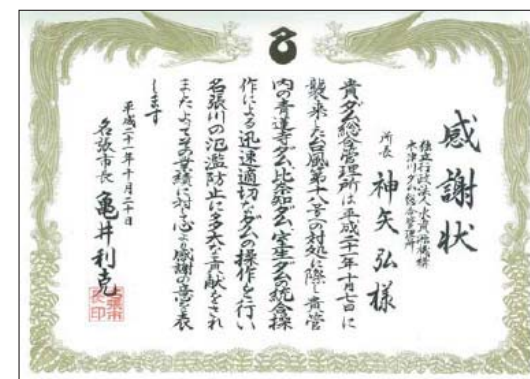 感謝状
独立行政法人水資源機構
木津川ダム総合管理所
所長 神矢弘様
貴ダム総合管理所は平成二十一年十月七日に
襲来した台風第十八号の対処に際し貴管
内の青蓮寺ダム、比奈知ダム、室生ダムの統合操
作による迅速適切なダムの操作を行い
名張川の氾濫防止に多大な貢献をされ
ましたよってその業績に対し心より感謝の意を表
します
平成二十一年十月二十日
名張市長 亀井利克